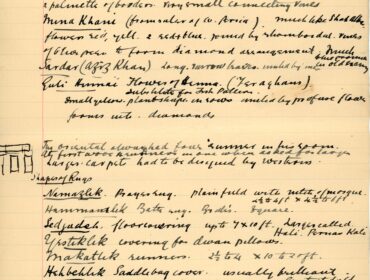 a palmette or border. Very small connecting vines
Mina Khani (from ruler of W. Persia). much like Shah Abbas
flowers red, yell. & red & blue. joined by rhomboidal vines
others peep to form diamond arrangement. Much
Sardar (Aziz Khan) Long. narrow leaves united by vines
Guli Hinnai Flower of Henna. (Feraghans)
Substitute for Fish Pattern.
Small yellow plant shape in rows united by profuse flower
forms into diamonds
The oriental always had four runners in his room.
larger carpet had to be designed by western.
Shapes of Rugs
Namazlik. Prayer rug. plain field with niche of mosque.
2½ to 4 ft x 4½ to 6 ft
Hammamlik Bath rug. Bride's. Square.
Sedjadeh. floor covering up to 7 x 10 ft. larger called
Hali.
Yestiklik covering for divan pillows.
Makatlik runners. 2½ to 4 x 10 to 20 ft.
Hehbehlik Saddle bag cover. usually brilliant